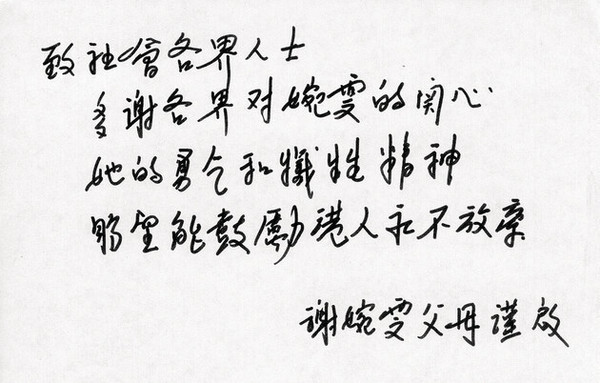 致社會各界人士
多謝各界对婉雯的関心
她的勇气和犧牲精神
盼望能鼓勵港人永不放棄
謝婉雯父母謹啟